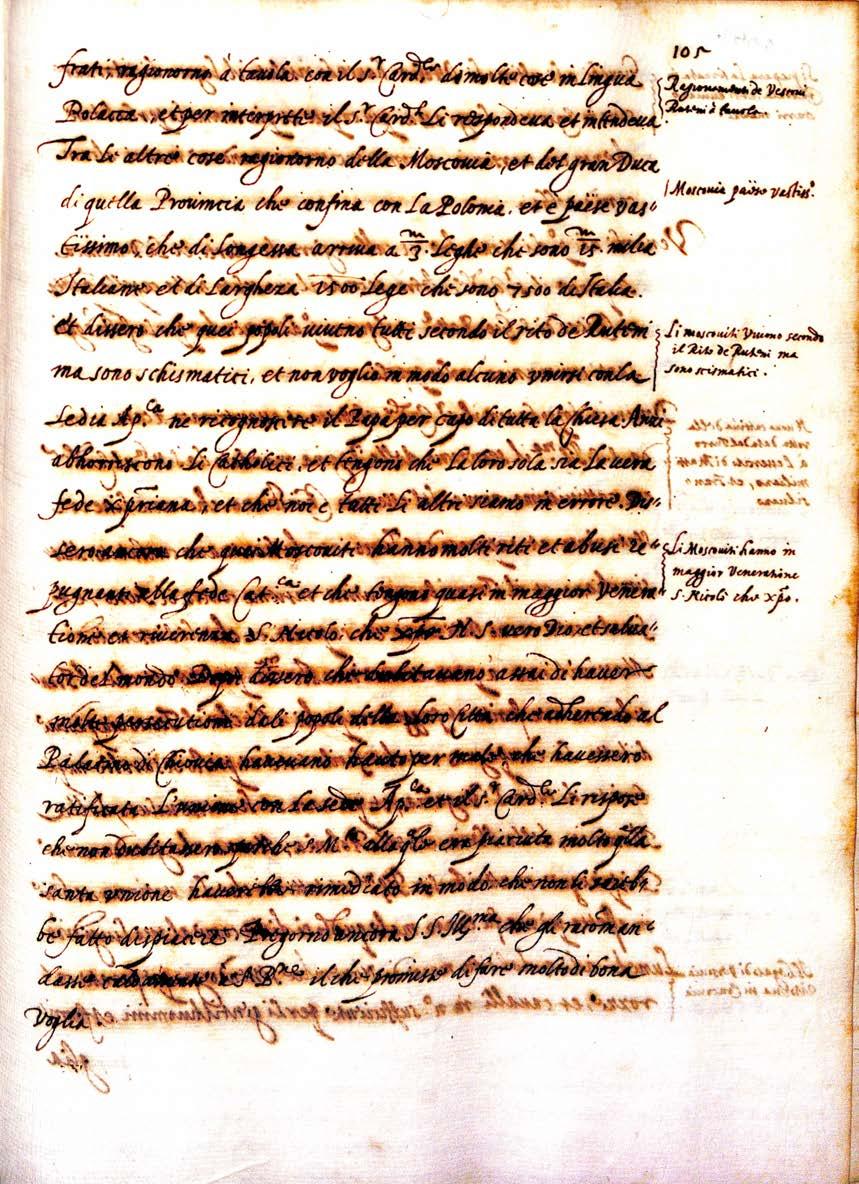 105
frati, ragionorno à tauola con il s.r Card.le di molte cose in lingua
Polacca, et per interprete il S.r Card.le li respondeua et intendeua
Tra le altre cose ragionorno della Moscouia, et del gran Duca
di quella Prouincia che confina con La Polonia. et è paëse vas-
tissimo, che di Longessa arriua a m/3. Leghe che sono m/15 milia
Italiane et di Largheza 1500 Lege che sono 7500 de Italia.
Et dissero che quei popoli uiueno tutti secondo il rito de Ruteni
ma sono schismatici, et non voglio in modo alcuno vnirsi con la
sedia Ap.ca ne ricognoscere il Papa per capo di tutta la Chiesa Anzi
abhorriscono li Catholici, et tengono che la loro sola sia la uera
fede xpriana, et che noi e tutti li altri siamo in errore. Dis-
sero ancora che quei Moscouiti hanno molti riti et abusi re-
pugnanti alla fede Cat.ca et che tengono quasi in maggior venera-
tione et riuerenza S. Nicolo, che xpo N. S. vero Dio, et salua-
tor del mondo Dopo dissero che dubitauano assai di hauer
molte persecutioni dali popoli delle loro Città che adherendo al
Palatino di Chiouia haueuano hauto per male, che hauessero
ratificata L'unione con La sede Ap.ca et il s.r Card.le Li rispose
che non dubitassero perche S. M.tà alla qle era piaciuta molto qlla
santa vnione hauerebbe rimediato in modo che non li sareb-
be fatto dispiacere Pregorno ancora S. S. Ill.ma che gli racoman-
dasse caldamente a S. B.ne il che promisse di fare molto di bona
voglia
Ragionamenti de Vescoui
Ruteni à tauola.
Moscouia paëse vastiss.o
Li moscouiti Viuono secondo
il Rito de Ruteni ma
sono scismatici.
Li Moscouiti hanno in
maggior Veneratione
S. Nicolò che xpo.